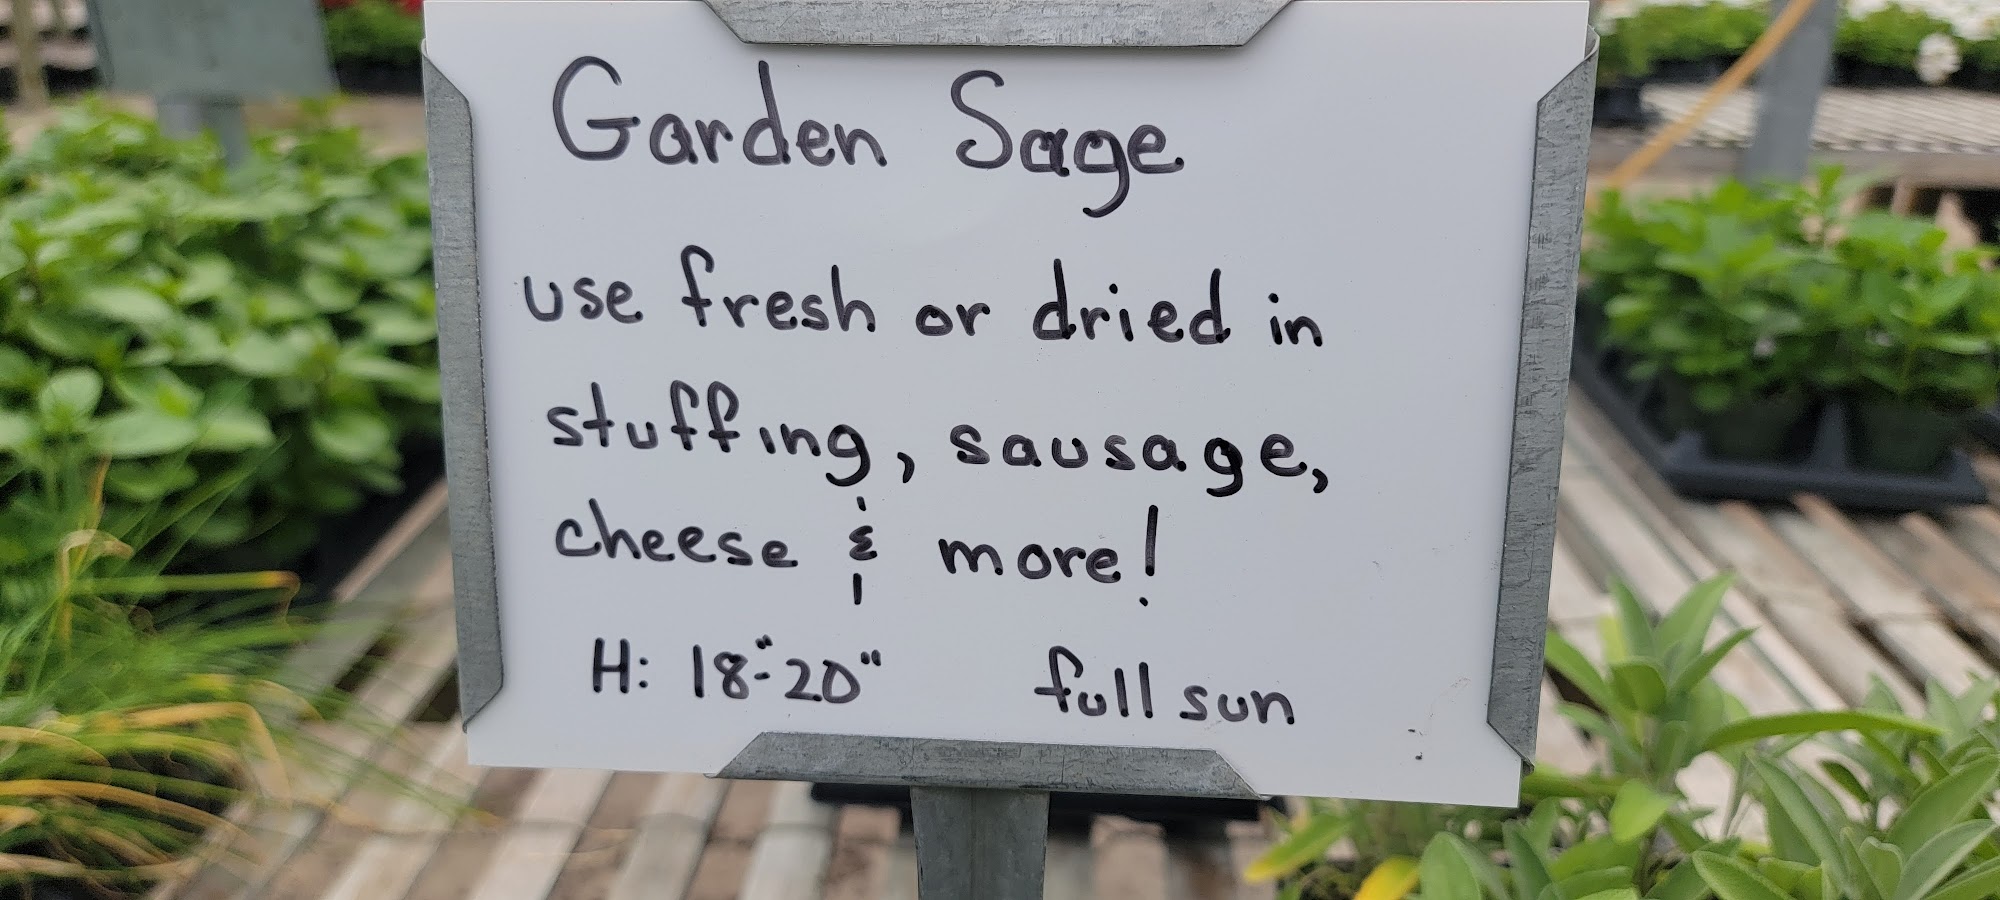 Garden Sage
use fresh or dried in
stuffing, sausage,
cheese & more!
H: 18"-20" full sun